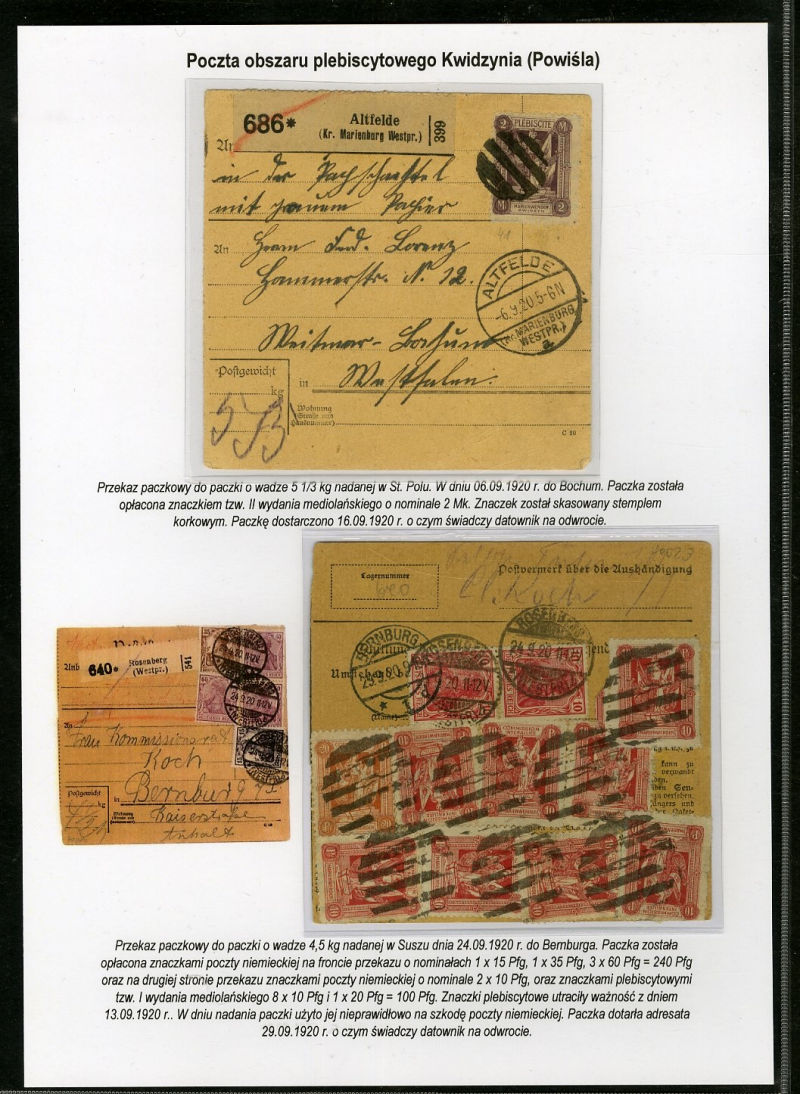 Poczta obszaru plebiscytowego Kwidzynia (Powiśla)
686*
Altfelde
(Kr. Marienburg Westpr.)
399
2 PLEBISCITE M
M 2
MARIENWERDER
in der Pachschachtel
mit grauem Papier
An Herrn Ferd. Lorenz
Hammerstr. N. 12.
ALTFELDE
-6.9.20.5-6N
(Kr. MARIENBURG
WESTPR.)
a
Weitmar-Bochum
in Westfalen.
Postgewicht
kg
Wohnung
(Straße und
Hausnummer)
C 20
Przekaz paczkowy do paczki o wadze 5 1/3 kg nadanej w St. Polu. W dniu 06.09.1920 r. do Bochum. Paczka została
opłacona znaczkiem tzw. II wydania mediolańskiego o nominale 2 Mk. Znaczek został skasowany stemplem
korkowym. Paczkę dostarczono 16.09.1920 r. o czym świadczy datownik na odwrocie.
Lagernummer
Postvermerk über die Aushändigung
Koch
ROSENBERG
24.9.20
BERNBURG
29.9.20
ROSENBERG
20.11-12V
10
kann zu
verwandt
den Sen-
zu versehen.
ängers und
der Paket-
640*
Rosenberg
(Westpr.)
541
24.9.20 11-12V
Frau Kommissionsrat
Koch
in Bernburg
Kaiserstraße
Anhalt
Postgewicht
kg
Wohnung
Przekaz paczkowy do paczki o wadze 4,5 kg nadanej w Suszu dnia 24.09.1920 r. do Bernburga. Paczka została
opłacona znaczkami poczty niemieckiej na froncie przekazu o nominałach 1 x 15 Pfg, 1 x 35 Pfg, 3 x 60 Pfg = 240 Pfg
oraz na drugiej stronie przekazu znaczkami poczty niemieckiej o nominale 2 x 10 Pfg, oraz znaczkami plebiscytowymi
tzw. I wydania mediolańskiego 8 x 10 Pfg i 1 x 20 Pfg = 100 Pfg. Znaczki plebiscytowe utraciły ważność z dniem
13.09.1920 r.. W dniu nadania paczki użyto jej nieprawidłowo na szkodę poczty niemieckiej. Paczka dotarła adresata
29.09.1920 r. o czym świadczy datownik na odwrocie.